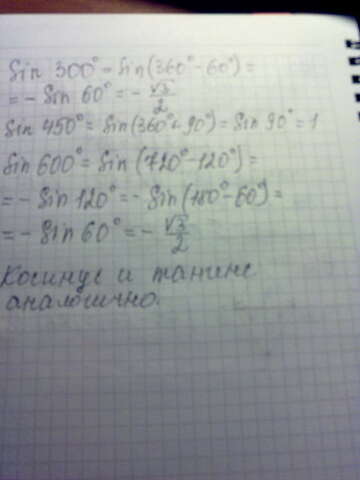 Sin 300° = Sin(360° - 60°) =
= - Sin 60° = - √3/2
Sin 450° = Sin(360° + 90°) = Sin 90° = 1
Sin 600° = Sin(720° - 120°) =
= - Sin 120° = - Sin(180° - 60°) =
= - Sin 60° = - √3/2
Косинус и танинс
аналогично.